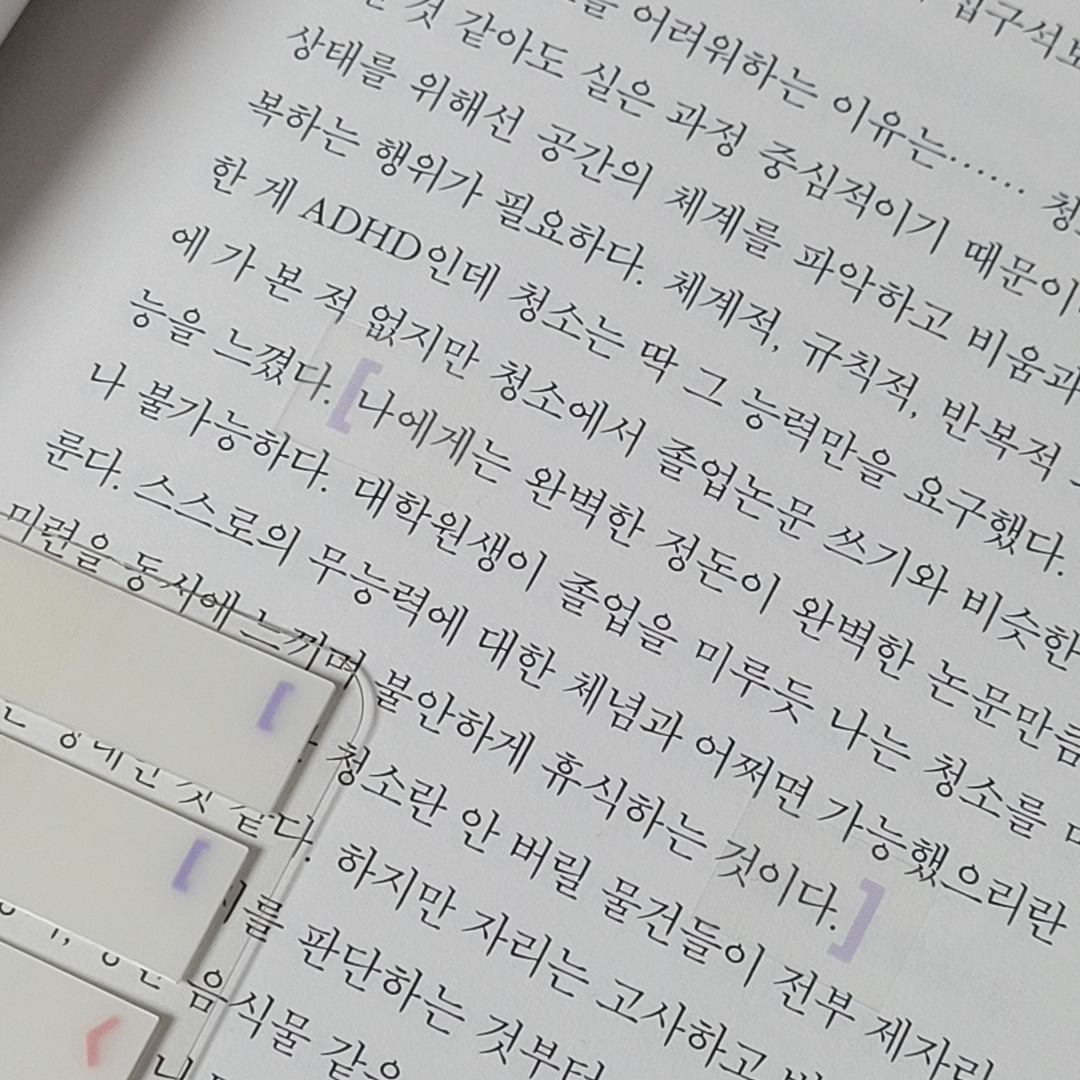 어려워하는 이유는…… 청
것 같아도 실은 과정 중심적이기 때문이
상태를 위해선 공간의 체계를 파악하고 비움과
복하는 행위가 필요하다. 체계적, 규칙적, 반복적
한 게 ADHD인데 청소는 딱 그 능력만을 요구했다.
에 가 본 적 없지만 청소에서 졸업논문 쓰기와 비슷한
능을 느꼈다. [나에게는 완벽한 정돈이 완벽한 논문만큼
나 불가능하다. 대학원생이 졸업을 미루듯 나는 청소를
룬다. 스스로의 무능력에 대한 체념과 어쩌면 가능했으리란
미련을 동시에 느끼며 불안하게 휴식하는 것이다.]
청소란 안 버릴 물건들이 전부 제자리
것 같다. 하지만 자리는 고사하고
를 판단하는 것부터
음식물 같은